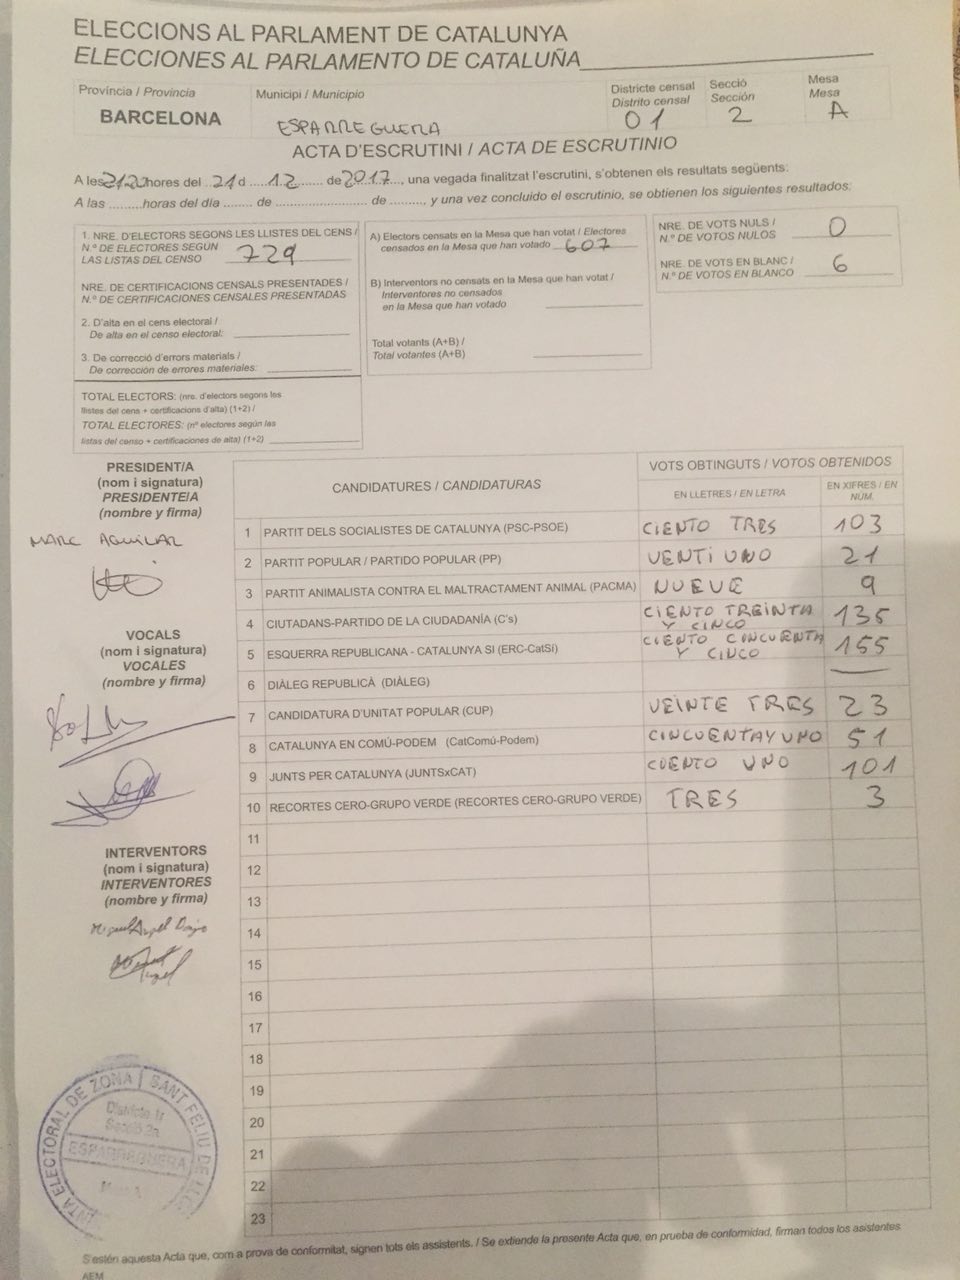 ELECCIONS AL PARLAMENT DE CATALUNYA
ELECCIONES AL PARLAMENTO DE CATALUÑA
Província / Provincia
BARCELONA
Municipi / Municipio
ESPARREGUERA
Districte censal
Distrito censal
01
Secció
Sección
2
Mesa
Mesa
A
ACTA D'ESCRUTINI / ACTA DE ESCRUTINIO
A les hores del 21 d 12 de 2017, una vegada finalitzat l'escrutini, s'obtenen els resultats següents:
A las .........horas del día ........ de ........................ de ........., y una vez concluido el escrutinio, se obtienen los siguientes resultados:
1. NRE. D'ELECTORS SEGONS LES LLISTES DEL CENS /
N.º DE ELECTORES SEGÚN
LAS LISTAS DEL CENSO 729
NRE. DE CERTIFICACIONS CENSALS PRESENTADES /
N.º DE CERTIFICACIONES CENSALES PRESENTADAS
2. D'alta en el cens electoral /
De alta en el censo electoral:
3. De correcció d'errors materials /
De corrección de errores materiales:
TOTAL ELECTORS: (nre. d'electors segons les
llistes del cens + certificacions d'alta) (1+2) /
TOTAL ELECTORES: (nº electores según las
listas del censo + certificaciones de alta) (1+2)
A) Electors censats en la Mesa que han votat / Electores
censados en la Mesa que han votado 607
B) Interventors no censats en la Mesa que han votat /
Interventores no censados
en la Mesa que han votado
Total votants (A+B) /
Total votantes (A+B)
NRE. DE VOTS NULS /
N.º DE VOTOS NULOS 0
NRE. DE VOTS EN BLANC /
N.º DE VOTOS EN BLANCO 6
PRESIDENT/A
(nom i signatura)
PRESIDENTE/A
(nombre y firma)
MARC AGUILAR
VOCALS
(nom i signatura)
VOCALES
(nombre y firma)
INTERVENTORS
(nom i signatura)
INTERVENTORES
(nombre y firma)
CANDIDATURES / CANDIDATURAS
VOTS OBTINGUTS / VOTOS OBTENIDOS
EN LLETRES / EN LETRA
EN XIFRES / EN NÚM.
1 PARTIT DELS SOCIALISTES DE CATALUNYA (PSC-PSOE) CIENTO TRES 103
2 PARTIT POPULAR / PARTIDO POPULAR (PP) VENTI UNO 21
3 PARTIT ANIMALISTA CONTRA EL MALTRACTAMENT ANIMAL (PACMA) NUEVE 9
4 CIUTADANS-PARTIDO DE LA CIUDADANÍA (C's) CIENTO TREINTA Y CINCO 135
5 ESQUERRA REPUBLICANA - CATALUNYA SI (ERC-CatSí) CIENTO CINCUENTA Y CINCO 155
6 DIÀLEG REPUBLICÀ (DIÀLEG)
7 CANDIDATURA D'UNITAT POPULAR (CUP) VEINTE TRES 23
8 CATALUNYA EN COMÚ-PODEM (CatComú-Podem) CINCUENTA Y UNO 51
9 JUNTS PER CATALUNYA (JUNTSxCAT) CUENTO UNO 101
10 RECORTES CERO-GRUPO VERDE (RECORTES CERO-GRUPO VERDE) TRES 3
11
12
13
14
15
16
17
18
19
20
21
22
23
JUNTA ELECTORAL DE ZONA | SANT FELIU DE
Districte 1r
Secció 2a
ESPARREGUERA
Mesa A
S'estén aquesta Acta que, com a prova de conformitat, signen tots els assistents. / Se extiende la presente Acta que, en prueba de conformidad, firman todos los asistentes.
AEM